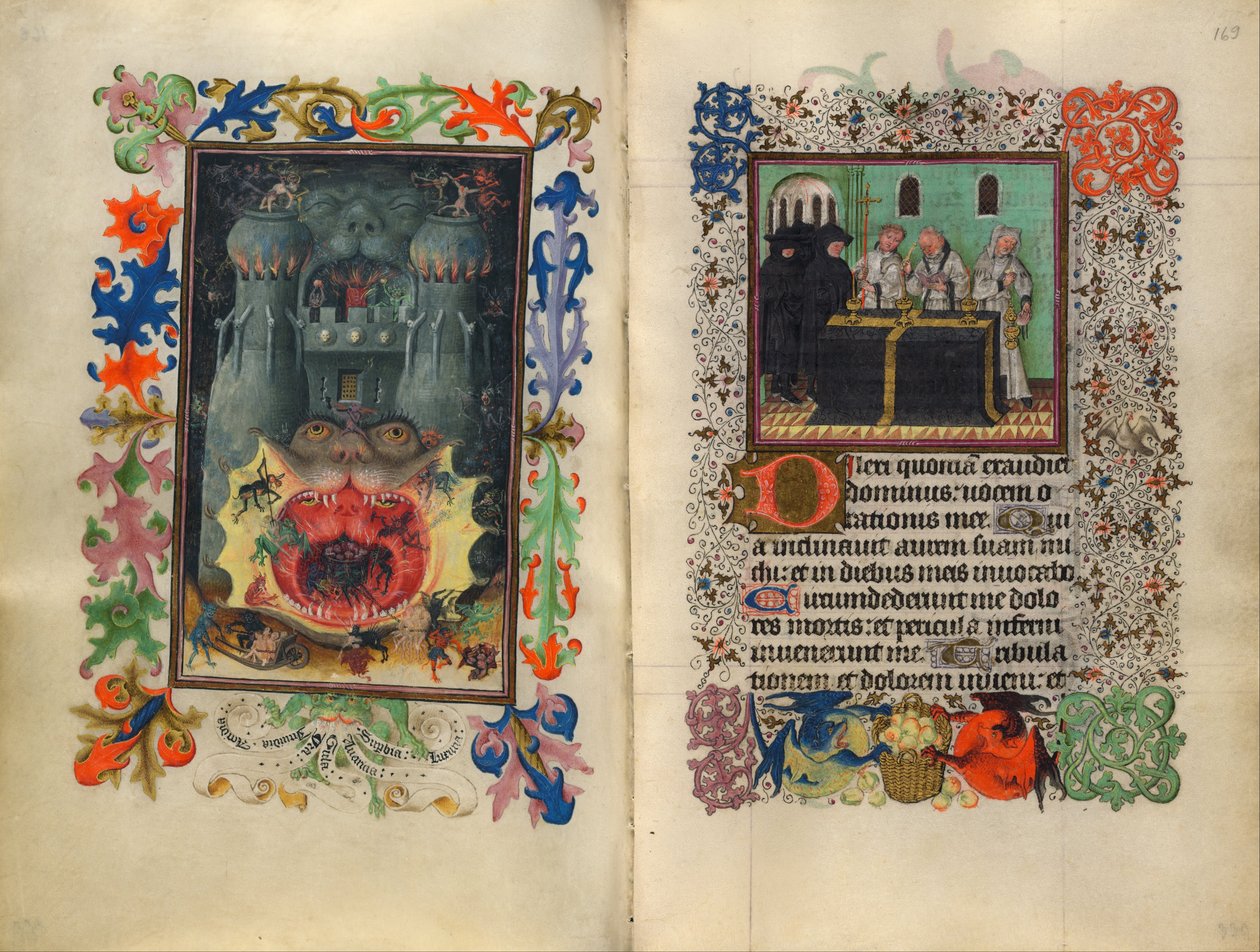 Accidia
Inuidia
Ira:
Gula
Auaricia:
Supbia:
Luxuria:
169
Dilexi quoniā exaudiet
dominus: uocem o
rationis mee. Qui
a inclinauit aurem suam mi
chi: et in diebus meis inuocabo
Circumdederunt me dolo
res mortis: et pericula inferni
inuenerunt me. Tribula
tionem et dolorem inueni: et